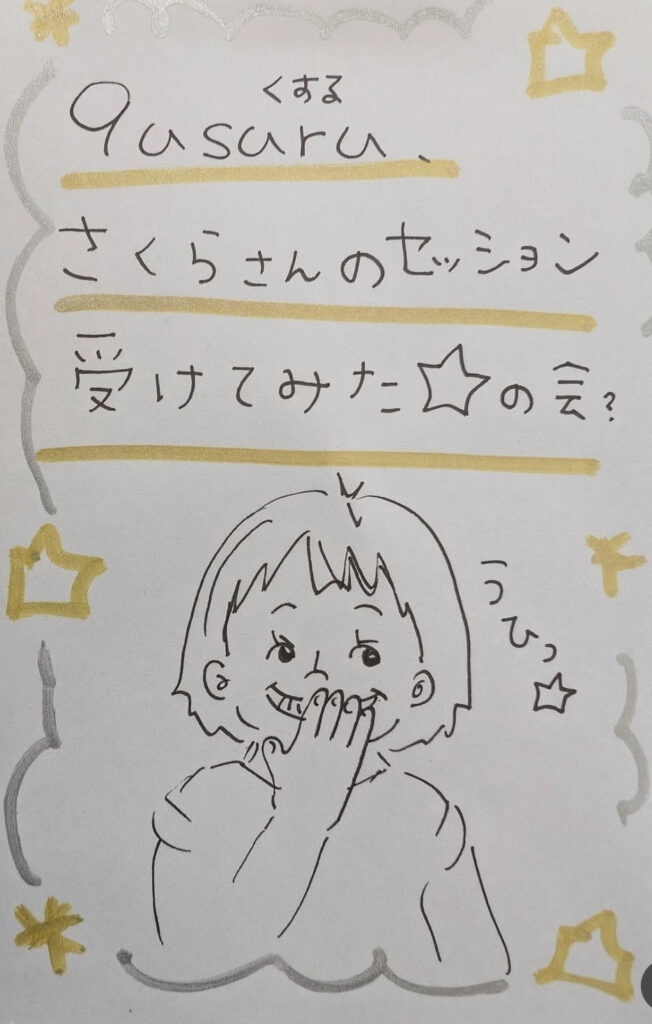 くする
qusuru.
さくらさんのセッション
受けてみた☆の会?
うひっ☆